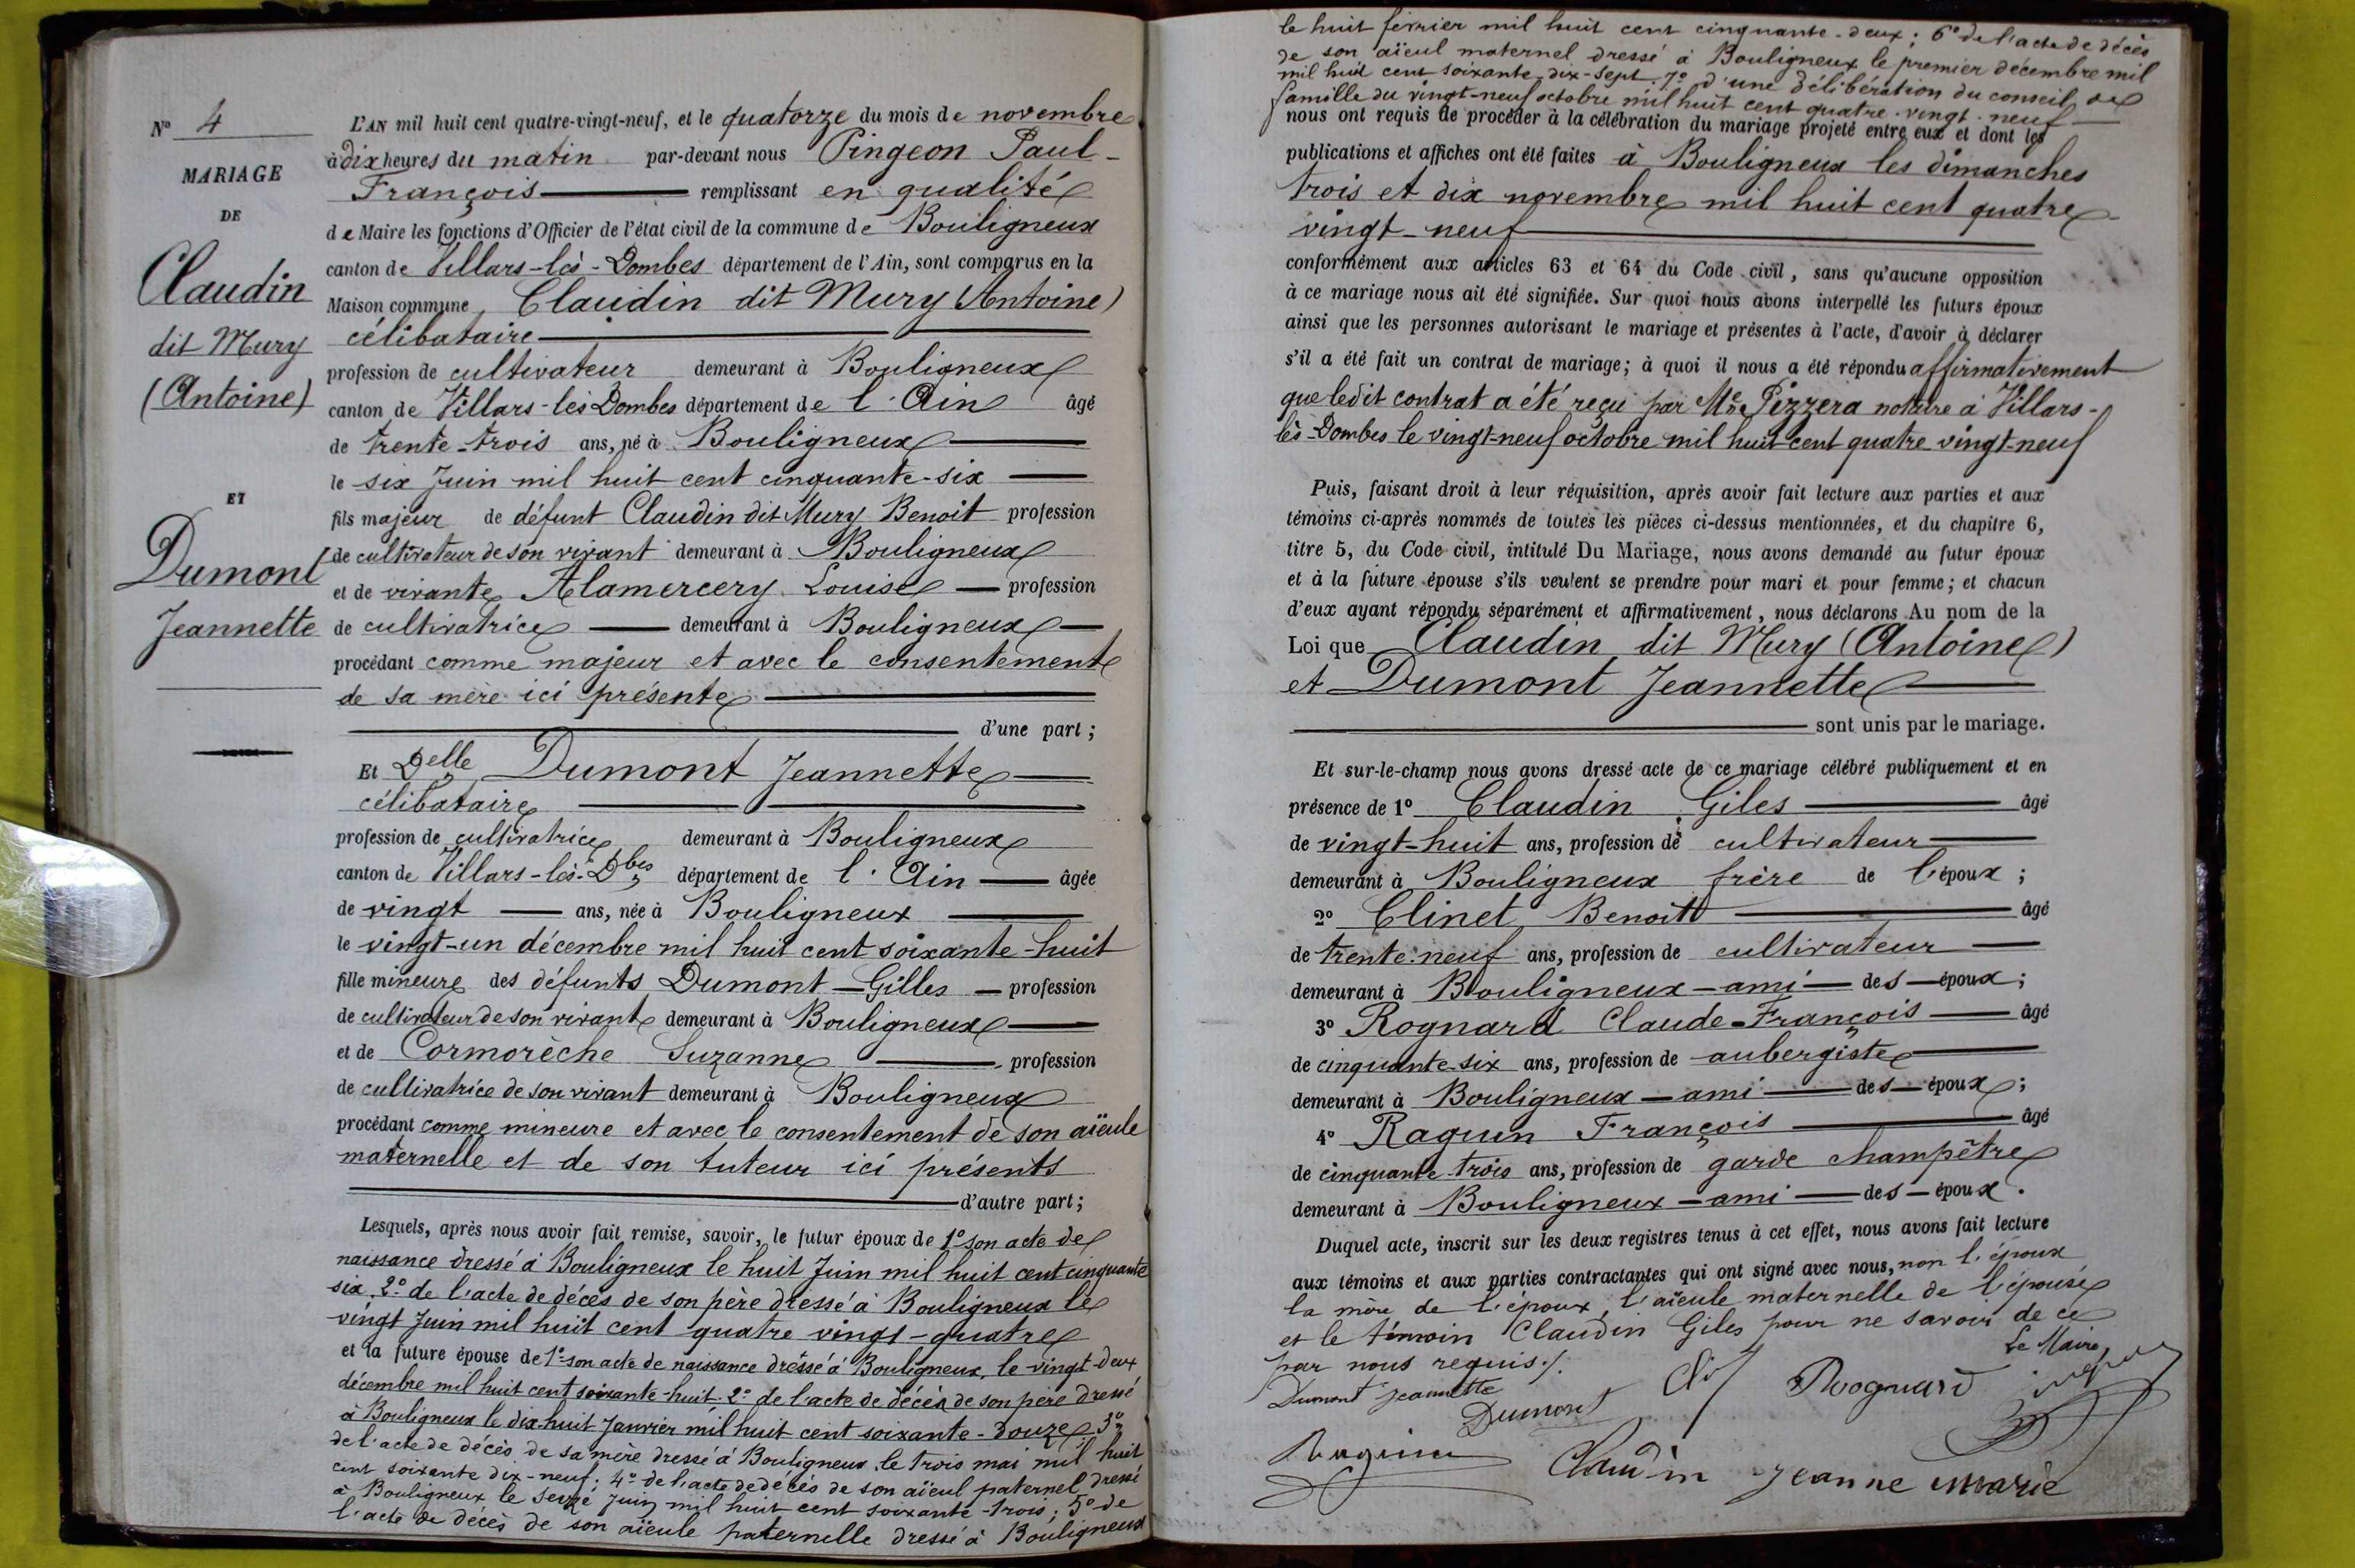 Nº 4
MARIAGE
DE
Claudin
dit Mury
(Antoine)
ET
Dumont
Jeannette
L'AN mil huit cent quatre-vingt-neuf, et le quatorze du mois de novembre
à dix heures du matin par-devant nous Pingeon Paul-
François remplissant en qualité
de Maire les fonctions d'Officier de l'état civil de la commune de Bouligneux
canton de Villars-lès-Dombes département de l'Ain, sont comparus en la
Maison commune, Claudin dit Mury (Antoine)
célibataire
profession de cultivateur demeurant à Bouligneux
canton de Villars-lès-Dombes département de l'Ain âgé
de trente-trois ans, né à Bouligneux
le six Juin mil huit cent cinquante-six
fils majeur de défunt Claudin dit Mury Benoit profession
de cultivateur de son vivant demeurant à Bouligneux
et de vivante Alamercery Louise profession
de cultivatrice demeurant à Bouligneux
procédant comme majeur et avec le consentement
de sa mère ici présente
d'une part ;
Et Delle Dumont Jeannette
célibataire
profession de cultivatrice demeurant à Bouligneux
canton de Villars-lès-Dbes département de l'Ain âgée
de vingt ans, née à Bouligneux
le vingt-un décembre mil huit cent soixante-huit
fille mineure des défunts Dumont Gilles profession
de cultivateur de son vivant demeurant à Bouligneux
et de Cormorèche Suzanne profession
de cultivatrice de son vivant demeurant à Bouligneux
procédant comme mineure et avec le consentement de son aïeule
maternelle et de son tuteur ici présents
d'autre part ;
Lesquels, après nous avoir fait remise, savoir, le futur époux de 1º son acte de
naissance dressé à Bouligneux le huit Juin mil huit cent cinquante
six. 2º de l'acte de décès de son père dressé à Bouligneux le
vingt Juin mil huit cent quatre vingt-quatre
et la future épouse de 1º son acte de naissance dressé à Bouligneux, le vingt-deux
décembre mil huit cent soixante-huit. 2º de l'acte de décès de son père dressé
à Bouligneux le dix-huit Janvier mil huit cent soixante-douze 3º
de l'acte de décès de sa mère dressé à Bouligneux le trois mai mil huit
cent soixante dix-neuf. 4º de l'acte de décès de son aïeul paternel dressé
à Bouligneux le seize Juin mil huit cent soixante-trois ; 5º de
l'acte de décès de son aïeule paternelle dressé à Bouligneux
le huit février mil huit cent cinquante-deux ; 6º de l'acte de décès
de son aïeul maternel dressé à Bouligneux le premier décembre mil
mil huit cent soixante-dix-sept. 7º d'une délibération du conseil de
famille du vingt-neuf octobre mil huit cent quatre-vingt-neuf
nous ont requis de procéder à la célébration du mariage projeté entre eux et dont les
publications et affiches ont été faites à Bouligneux les dimanches
trois et dix novembre mil huit cent quatre
vingt-neuf
conformément aux articles 63 et 64 du Code civil, sans qu'aucune opposition
à ce mariage nous ait été signifiée. Sur quoi nous avons interpellé les futurs époux
ainsi que les personnes autorisant le mariage et présentes à l'acte, d'avoir à déclarer
s'il a été fait un contrat de mariage; à quoi il nous a été répondu affirmativement
que ledit contrat a été reçu par Me Pizzera notaire à Villars-
lès-Dombes le vingt-neuf octobre mil huit cent quatre vingt-neuf
Puis, faisant droit à leur réquisition, après avoir fait lecture aux parties et aux
témoins ci-après nommés de toutes les pièces ci-dessus mentionnées, et du chapitre 6,
titre 5, du Code civil, intitulé Du Mariage, nous avons demandé au futur époux
et à la future épouse s'ils veulent se prendre pour mari et pour femme ; et chacun
d'eux ayant répondu séparément et affirmativement, nous déclarons Au nom de la
Loi que Claudin dit Mury (Antoine)
et Dumont Jeannette
sont unis par le mariage.
Et sur-le-champ nous avons dressé acte de ce mariage célébré publiquement et en
présence de 1º Claudin Giles âgé
de vingt-huit ans, profession de cultivateur
demeurant à Bouligneux frère de l'époux ;
2º Clinet Benoit âgé
de trente-neuf ans, profession de cultivateur
demeurant à Bouligneux - ami des époux ;
3º Rognard Claude-François âgé
de cinquante-six ans, profession de aubergiste
demeurant à Bouligneux - ami des époux ;
4º Raguin François âgé
de cinquante trois ans, profession de garde champêtre
demeurant à Bouligneux - ami des époux.
Duquel acte, inscrit sur les deux registres tenus à cet effet, nous avons fait lecture
aux témoins et aux parties contractantes qui ont signé avec nous, non l'époux
la mère de l'époux, l'aïeule maternelle de l'épouse
et le témoin Claudin Giles pour ne savoir de ce
par nous requis./.
Le Maire,
Dumont Jeannette
Dumont
Rognard
Raguin
Claudin Jeanne Marie